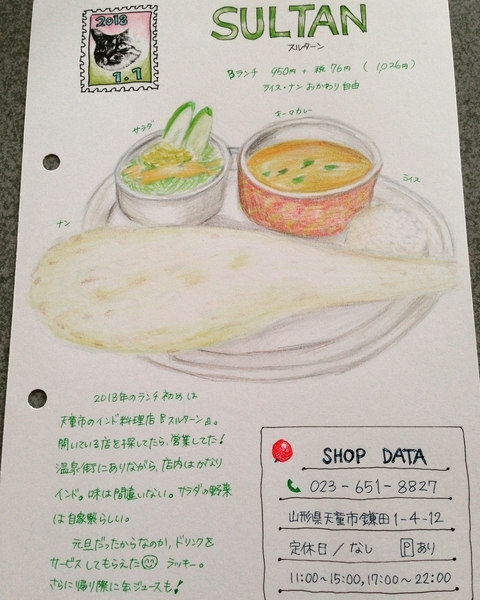 2018
1.1
SULTAN
スルターン
Bランチ 950円 + 税 76円 (1,026円)
ライス・ナン おかわり自由
サラダ
キーマカレー
ライス
ナン
2018年のランチ初めは
天童市のインド料理店『スルターン』。
開いている店を探してたら、営業してた!
温泉街にありながら、店内はかなり
インド。味は間違いない。サラダの野菜
は自家製らしい。
元旦だったからなのか、ドリンクを
サービスしてもらえた ラッキー。
さらに帰り際に缶ジュースも!
SHOP DATA
023-651-8827
山形県天童市鎌田1-4-12
定休日/なし Pあり
11:00~15:00,17:00~22:00